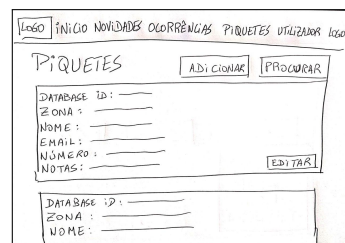 LOGO INÍCIO NOVIDADES OCORRÊNCIAS PIQUETES UTILIZADOR LOGO
PIQUETES ADICIONAR PROCURAR
DATABASE ID:
ZONA:
NOME:
EMAIL:
NÚMERO:
NOTAS: EDITAR
DATABASE ID:
ZONA:
NOME: